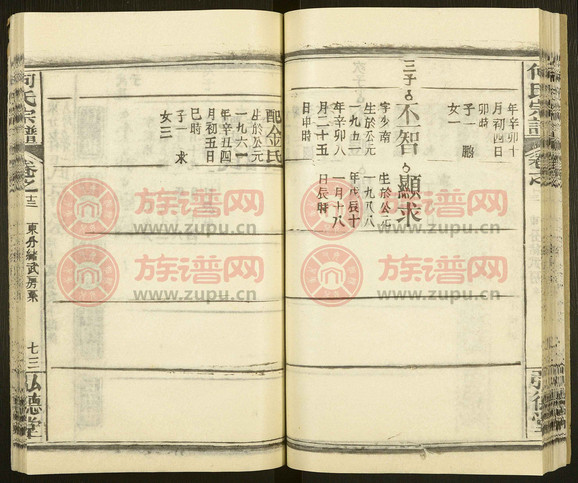 何氏宗譜
卷之
年辛卯十
月初四日
卯時
子一 鵬
女一
三子
不智
字少南
生於公元
一九五一
年辛卯八
月二十五
日申時
顯求
生於公元
一九八八
年戊辰十
一月十八
日辰時
配金氏
生於公元
一九六一
年辛丑四
月初五日
巳時
子一 求
女三
何氏宗譜
卷之
東分緒武房系
七三
弘德堂
族谱网
www.zupu.cn
族谱网
www.zupu.cn
族谱网
www.zupu.cn
族谱网
www.zupu.cn